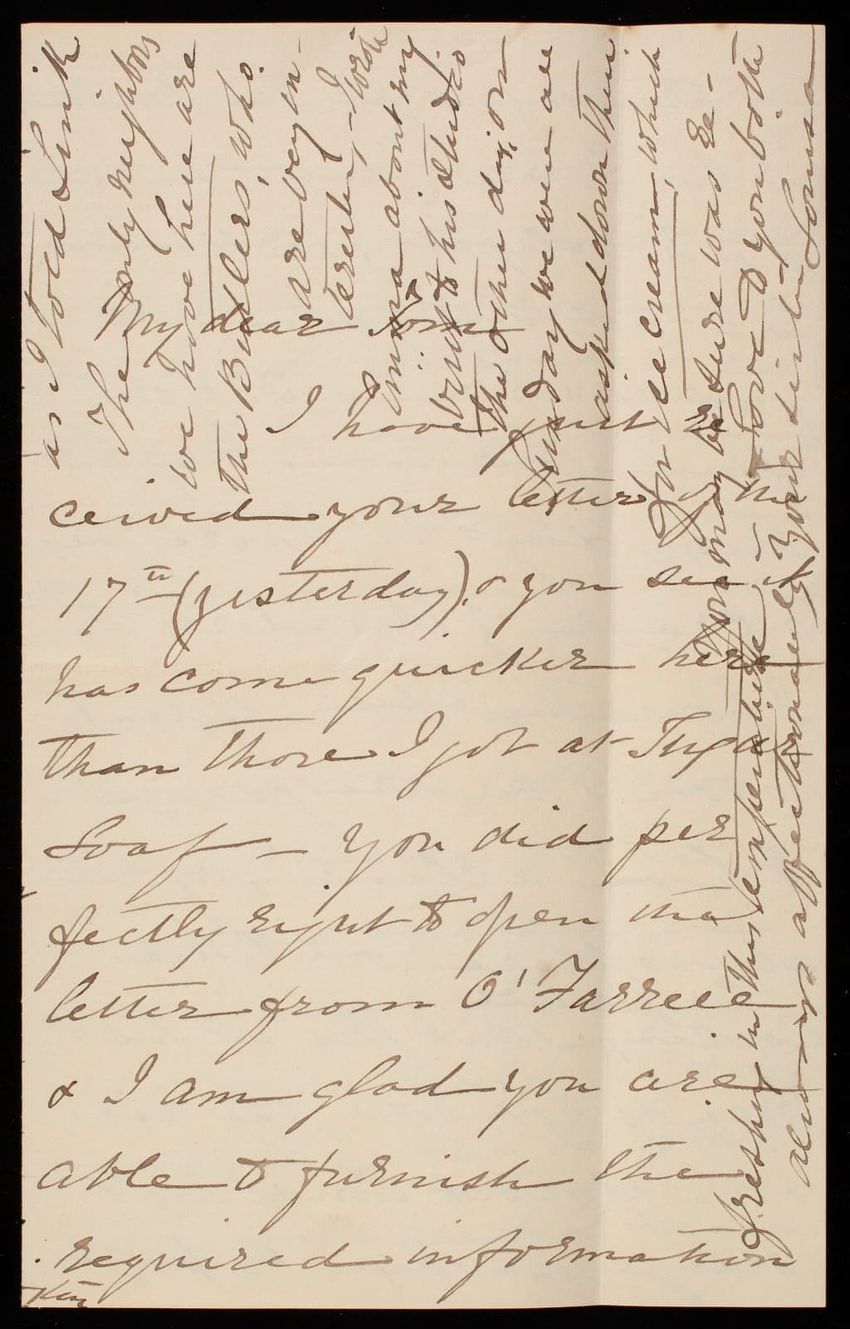 My dear Tom
I have just re
ceived your letter of the
17th (yesterday) & you see it
has come quicker here
than those I got at
Loaf — you did per
fectly right to open the
letter from O'Farrell
& I am glad you are
able to furnish the
required information
as I told Link
The only neighbors
we have here are
the Butlers, who
are very in-
teresting — I wrote
about my
visit to his studio
the other day, on
Sunday we were all
asked down there
for ice cream, which
you may be sure was re-
freshing in this temperature
Love to you both
always affectionately your sister Louisa